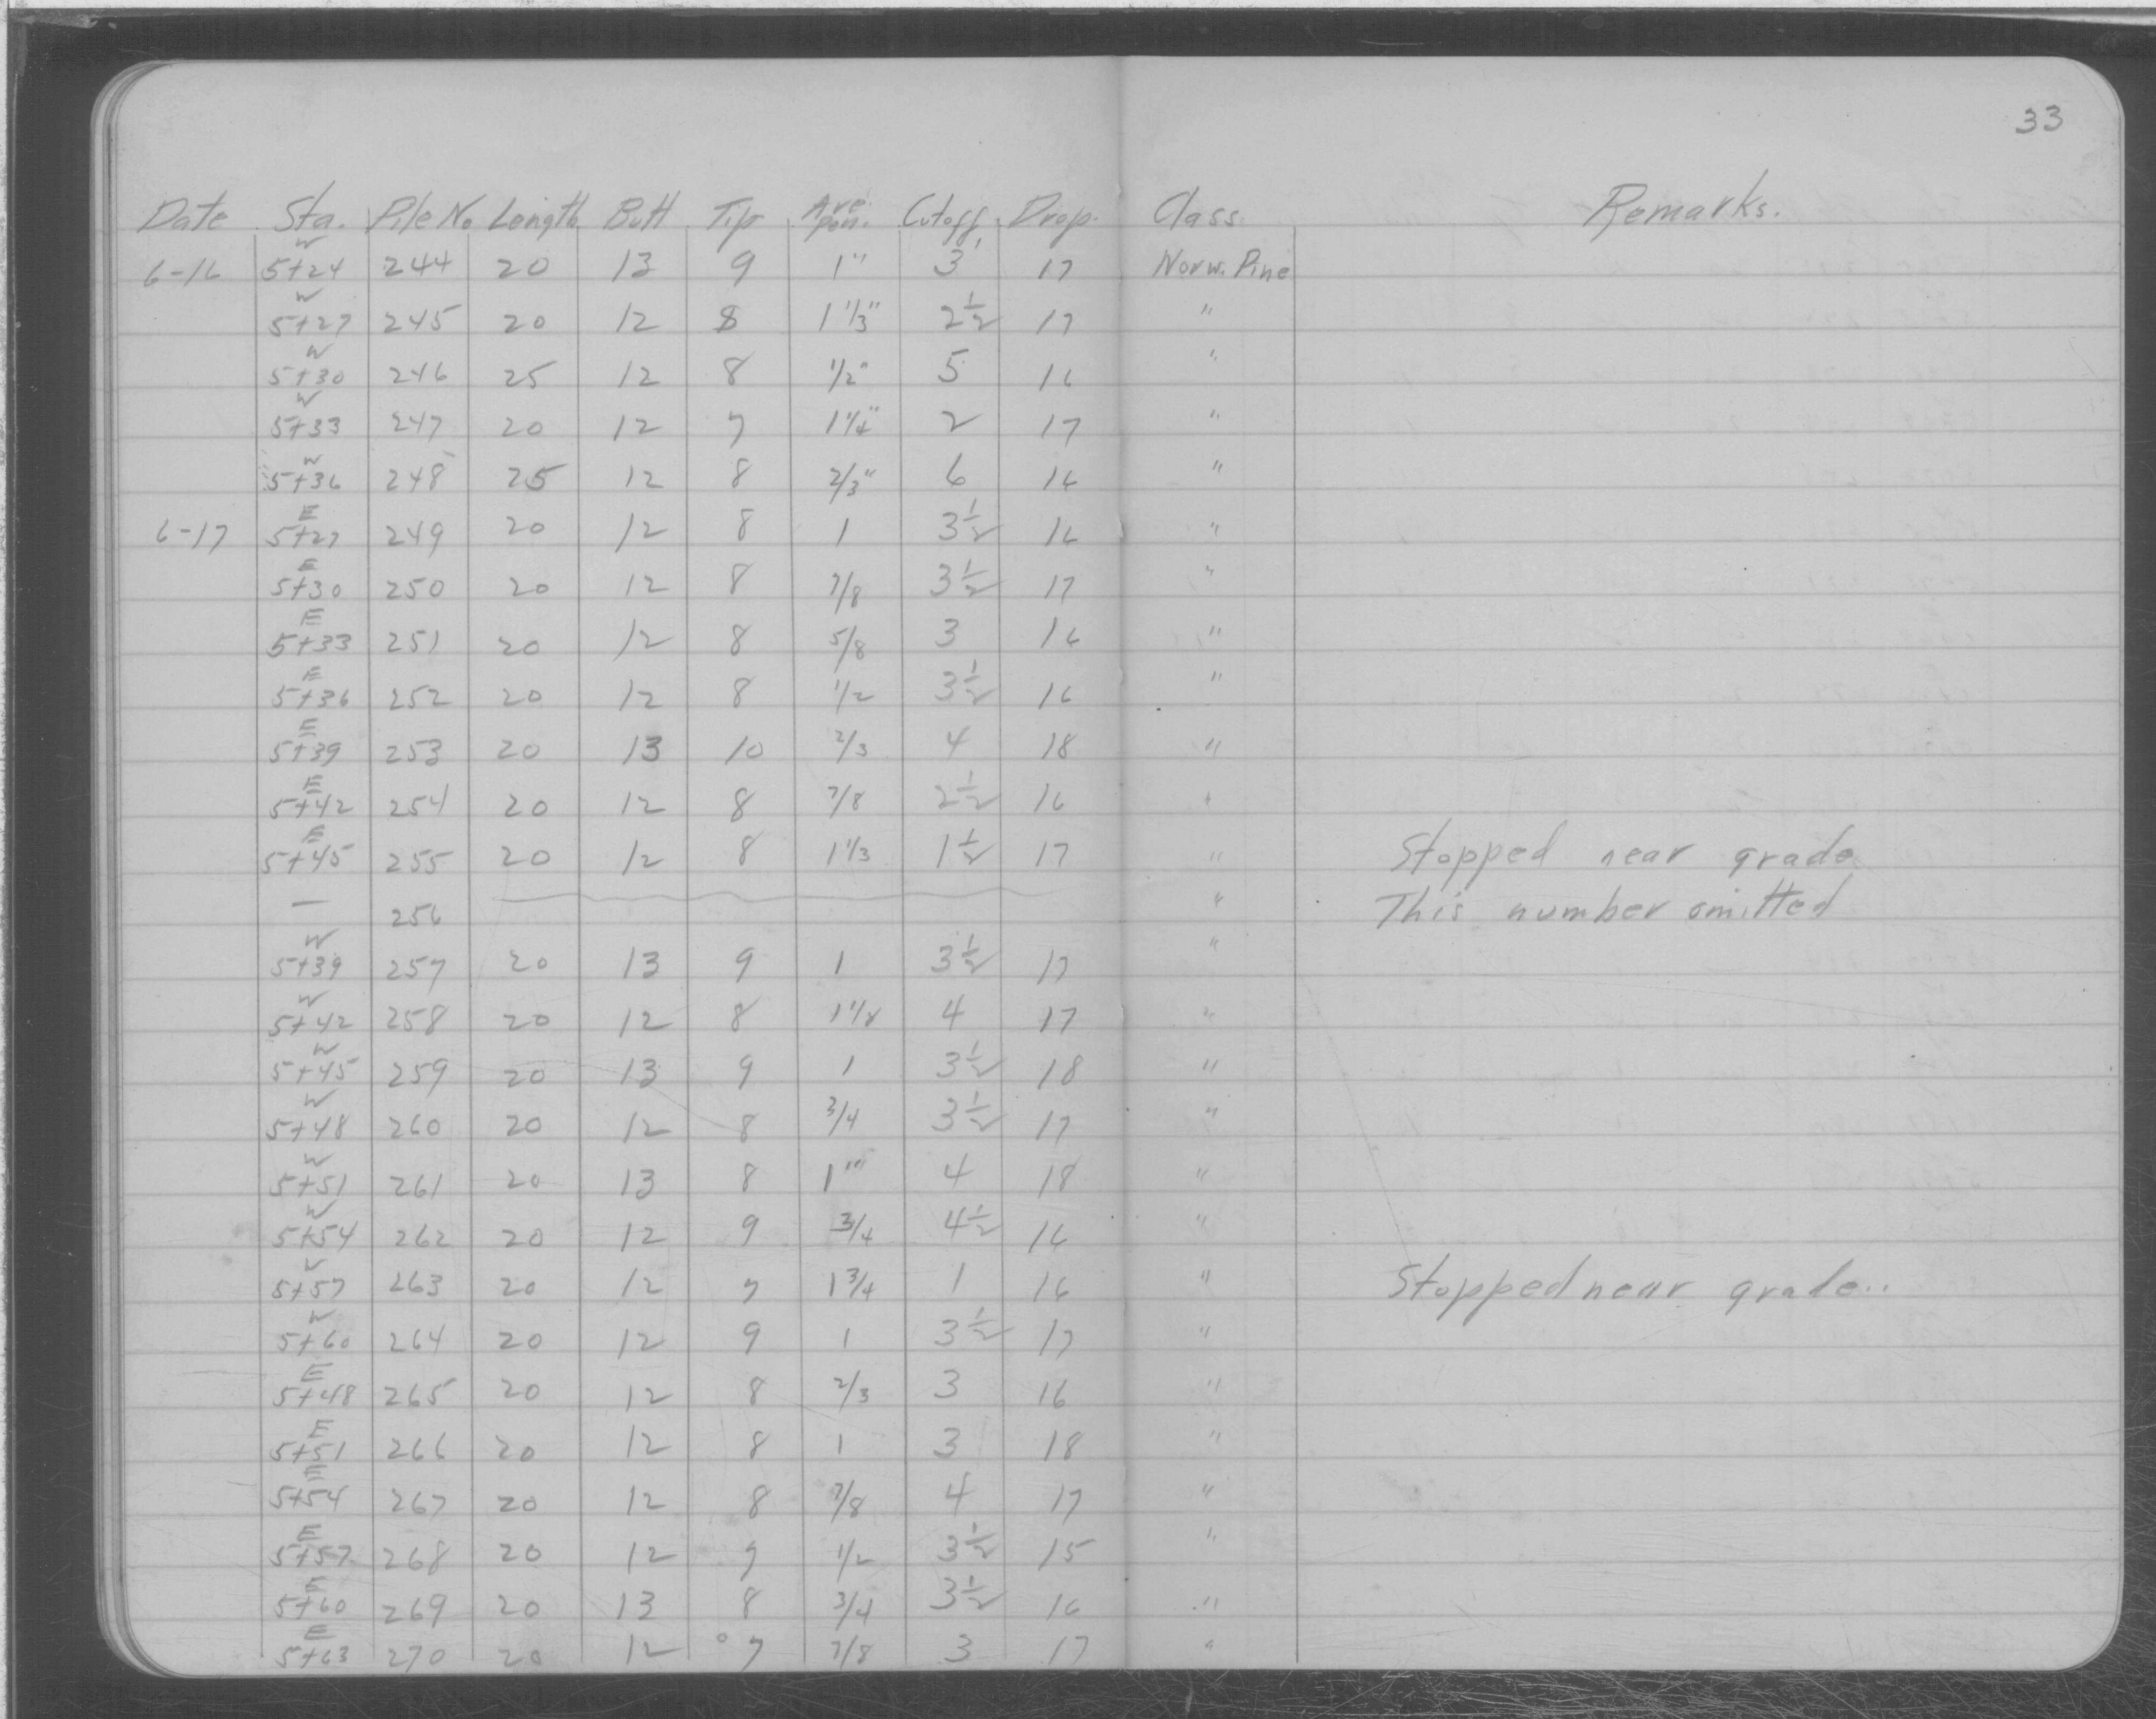 33
Date Sta. Pile No. Length Butt Tip Ave. pen. Cutoff Drop. Class Remarks.
6-16 W 5+24 244 20 13 9 1" 3' 17 Norw. Pine
W 5+27 245 20 12 8 1 1/3" 2 1/2 17 "
W 5+30 246 25 12 8 1/2" 5 16 "
W 5+33 247 20 12 7 1 1/4" 2 17 "
W 5+36 248 25 12 8 2/3" 6 16 "
6-17 E 5+27 249 20 12 8 1 3 1/2 16 "
E 5+30 250 20 12 8 7/8 3 1/2 17 "
E 5+33 251 20 12 8 5/8 3 16 "
E 5+36 252 20 12 8 1/2 3 1/2 16 "
E 5+39 253 20 13 10 2/3 4 18 "
E 5+42 254 20 12 8 7/8 2 1/2 16 "
E 5+45 255 20 12 8 1 1/3 1 1/2 17 " Stopped near grade
— 256 " This number omitted
W 5+39 257 20 13 9 1 3 1/2 17 "
W 5+42 258 20 12 8 1 1/8 4 17 "
W 5+45 259 20 13 9 1 3 1/2 18 "
W 5+48 260 20 12 8 3/4 3 1/2 17 "
W 5+51 261 20 13 8 1" 4 18 "
W 5+54 262 20 12 9 3/4 4 1/2 16 "
W 5+57 263 20 12 7 1 3/4 1 16 " Stopped near grade..
W 5+60 264 20 12 9 1 3 1/2 17 "
E 5+48 265 20 12 8 2/3 3 16 "
E 5+51 266 20 12 8 1 3 18 "
E 5+54 267 20 12 8 7/8 4 17 "
E 5+57 268 20 12 7 1/2 3 1/2 15 "
E 5+60 269 20 13 8 3/4 3 1/2 16 "
E 5+63 270 20 12 7 7/8 3 17 "